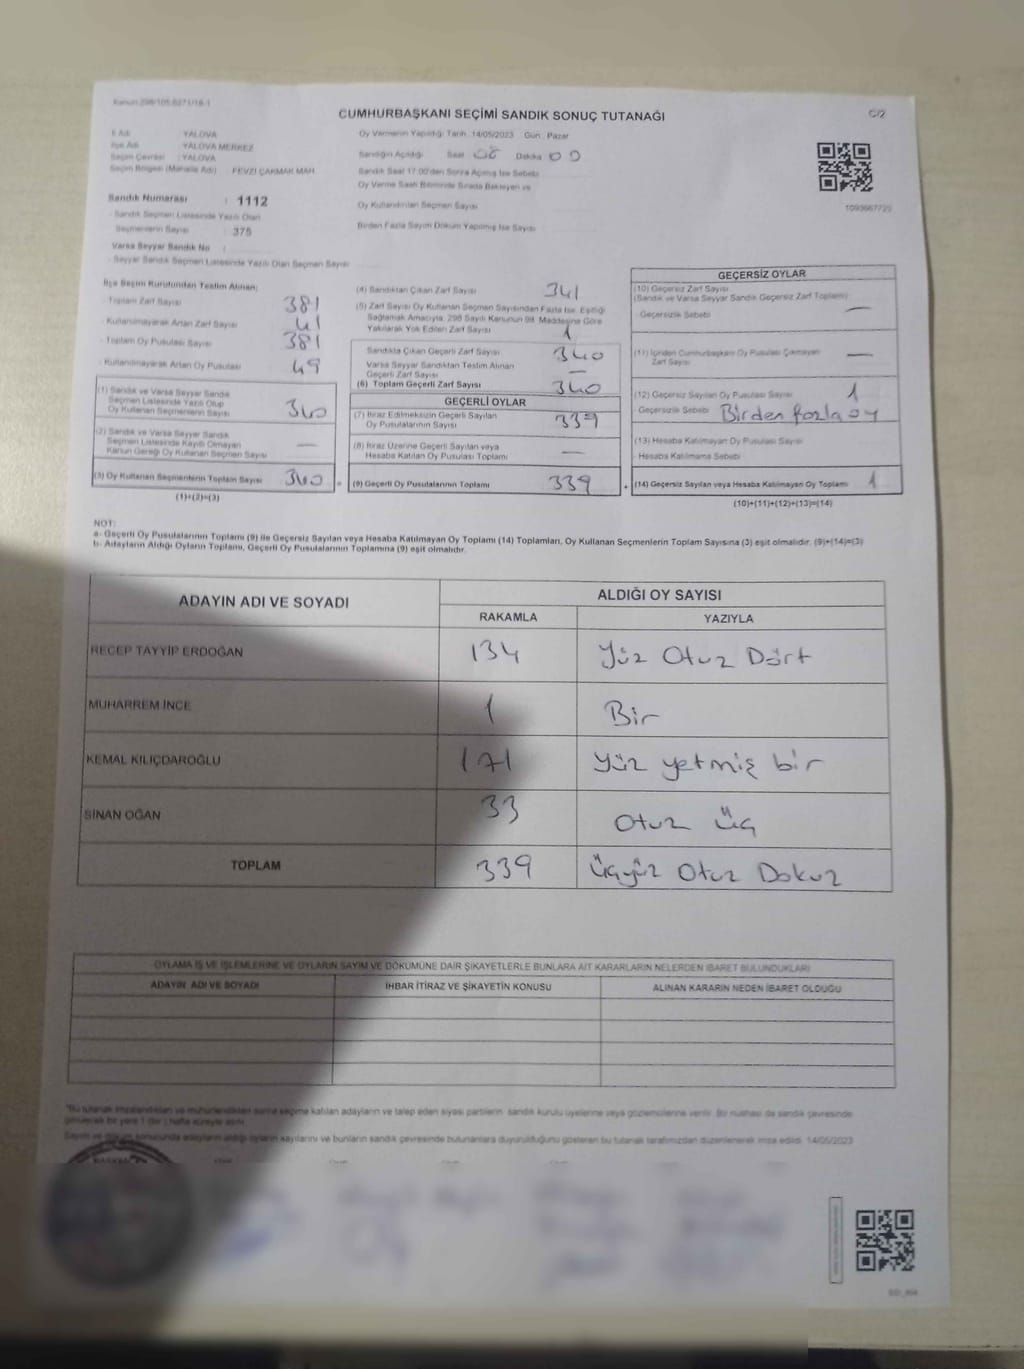 Kanun:298/105.6271/18-1
CUMHURBAŞKANI SEÇİMİ SANDIK SONUÇ TUTANAĞI
C/2
İl Adı : YALOVA
İlçe Adı : YALOVA MERKEZ
Seçim Çevresi : YALOVA
Seçim Bölgesi (Mahalle Adı) : FEVZİ ÇAKMAK MAH.
Sandık Numarası : 1112
- Sandık Seçmen Listesinde Yazılı Olan
Seçmenlerin Sayısı : 375
Varsa Seyyar Sandık No :
- Seyyar Sandık Seçmen Listesinde Yazılı Olan Seçmen Sayısı
Oy Vermenin Yapıldığı Tarih :14/05/2023 Gün : Pazar
Sandığın Açıldığı Saat Dakika 00
Sandık Saat 17:00'den Sonra Açılmış İse Sebebi
Oy Verme Saati Bitiminde Sırada Bekleyen ve
Oy Kullandırılan Seçmen Sayısı
Birden Fazla Sayım Döküm Yapılmış İse Sayısı
1093667729
İlçe Seçim Kurulundan Teslim Alınan;
- Toplam Zarf Sayısı 381
- Kullanılmayarak Artan Zarf Sayısı 41
- Toplam Oy Pusulası Sayısı 381
- Kullanılmayarak Artan Oy Pusulası 49
(1) Sandık ve Varsa Seyyar Sandık
Seçmen Listesinde Yazılı Olup
Oy Kullanan Seçmenlerin Sayısı 340
(2) Sandık ve Varsa Seyyar Sandık
Seçmen Listesinde Kayıtlı Olmayan
Kanun Gereği Oy Kullanan Seçmen Sayısı —
(3) Oy Kullanan Seçmenlerin Toplam Sayısı 340
(1)+(2)=(3)
(4) Sandıktan Çıkan Zarf Sayısı 341
(5) Zarf Sayısı Oy Kullanan Seçmen Sayısından Fazla İse, Eşitliği
Sağlamak Amacıyla, 298 Sayılı Kanunun 98. Maddesine Göre
Yakılarak Yok Edilen Zarf Sayısı 1
Sandıkta Çıkan Geçerli Zarf Sayısı 340
Varsa Seyyar Sandıktan Teslim Alınan
Geçerli Zarf Sayısı —
(6) Toplam Geçerli Zarf Sayısı 340
GEÇERLİ OYLAR
(7) İtiraz Edilmeksizin Geçerli Sayılan
Oy Pusulasının Sayısı 339
(8) İtiraz Üzerine Geçerli Sayılan veya
Hesaba Katılan Oy Pusulası Toplamı —
(9) Geçerli Oy Pusulalarının Toplamı 339
GEÇERSİZ OYLAR
(10) Geçersiz Zarf Sayısı
(Sandık ve Varsa Seyyar Sandık Geçersiz Zarf Toplamı)
- Geçersizlik Sebebi —
(11) İçinden Cumhurbaşkanı Oy Pusulası Çıkmayan
Zarf Sayısı —
(12) Geçersiz Sayılan Oy Pusulası Sayısı 1
- Geçersizlik Sebebi Birden fazla oy
(13) Hesaba Katılmayan Oy Pusulası Sayısı
- Hesaba Katılmama Sebebi
(14) Geçersiz Sayılan veya Hesaba Katılmayan Oy Toplamı 1
(10)+(11)+(12)+(13)=(14)
NOT:
a- Geçerli Oy Pusulalarının Toplamı (9) ile Geçersiz Sayılan veya Hesaba Katılmayan Oy Toplamı (14) Toplamları, Oy Kullanan Seçmenlerin Toplam Sayısına (3) eşit olmalıdır. (9)+(14)=(3)
b- Adayların Aldığı Oyların Toplamı, Geçerli Oy Pusulalarının Toplamına (9) eşit olmalıdır.
ADAYIN ADI VE SOYADI
ALDIĞI OY SAYISI
RAKAMLA YAZIYLA
RECEP TAYYİP ERDOĞAN 134 Yüz Otuz Dört
MUHARREM İNCE 1 Bir
KEMAL KILIÇDAROĞLU 171 Yüz yetmiş bir
SİNAN OĞAN 33 Otuz üç
TOPLAM 339 Üçyüz Otuz Dokuz
OYLAMA İŞ VE İŞLEMLERİNE VE OYLARIN SAYIM VE DÖKÜMÜNE DAİR ŞİKAYETLERLE BUNLARA AİT KARARLARIN NELERDEN İBARET BULUNDUKLARI
ADAYIN ADI VE SOYADI İHBAR İTİRAZ VE ŞİKAYETİN KONUSU ALINAN KARARIN NEDEN İBARET OLDUĞU
"Bu tutanak imzalandıktan ve mühürlendikten sonra seçime katılan adayların ve talep eden siyasi partilerin sandık kurulu üyelerine veya gözlemcilerine verilir. Bir nüshası da sandık çevresinde
görülecek bir yere 1 (bir) hafta süreyle asılır.
Sayım ve döküm sonucunda adayların aldığı oyların sayılarını ve bunların sandık çevresinde bulunanlara duyurulduğunu gösteren bu tutanak tarafımızdan düzenlenerek imza edildi. 14/05/2023